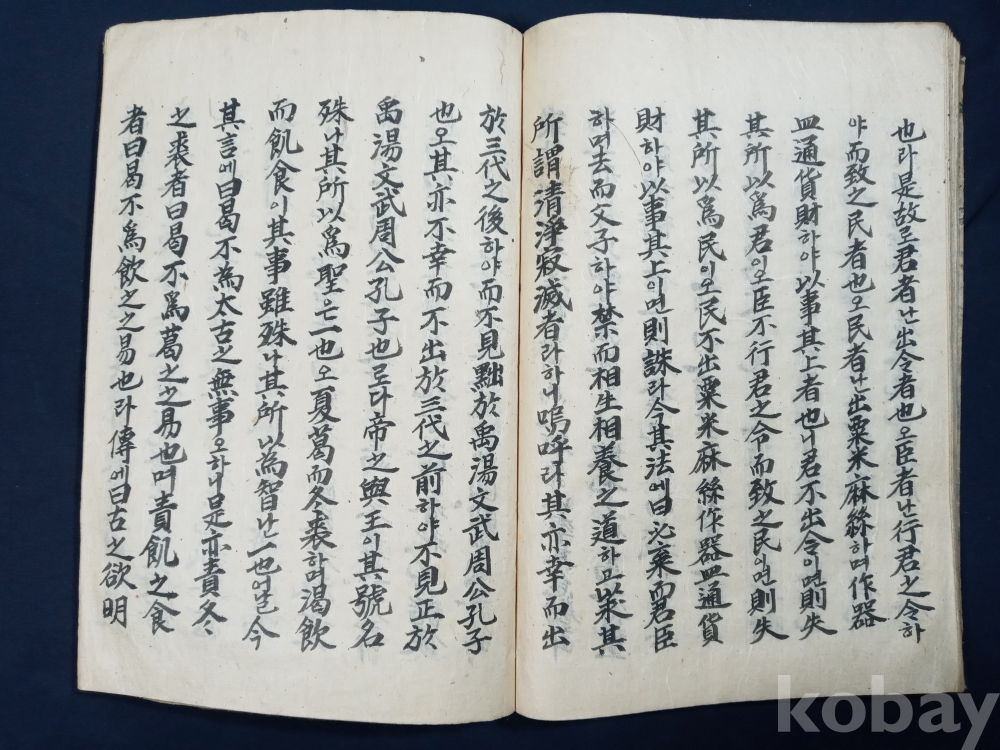 也라是故로君者난出令者也오臣者난行君之令하
야而致之民者也오民者난出粟米麻絲하며作器
皿通貨財하야以事其上者也니君不出令이면則失
其所以爲君이오臣不行君之令而致之民이면則失
其所以爲民이오民不出粟米麻絲作器皿通貨
財하야以事其上이면則誅라今其法에曰必棄而君臣
하며去而父子하야禁而相生相養之道하고以求其
所謂清淨寂滅者라하니嗚呼라其亦幸而出
於三代之後하야而不見黜於禹湯文武周公孔子
也오其亦不幸而不出於三代之前하야不見正於
禹湯文武周公孔子也로다帝之與王이其號名
殊나其所以爲聖은一也오夏葛而冬裘하며渴飮
而飢食이其事雖殊나其所以為智난一也어날今
其言에曰曷不為太古之無事오하니是亦責冬
之裘者曰曷不爲葛之之易也며責飢之食
者曰曷不爲飮之之易也라傳에曰古之欲明
kobay